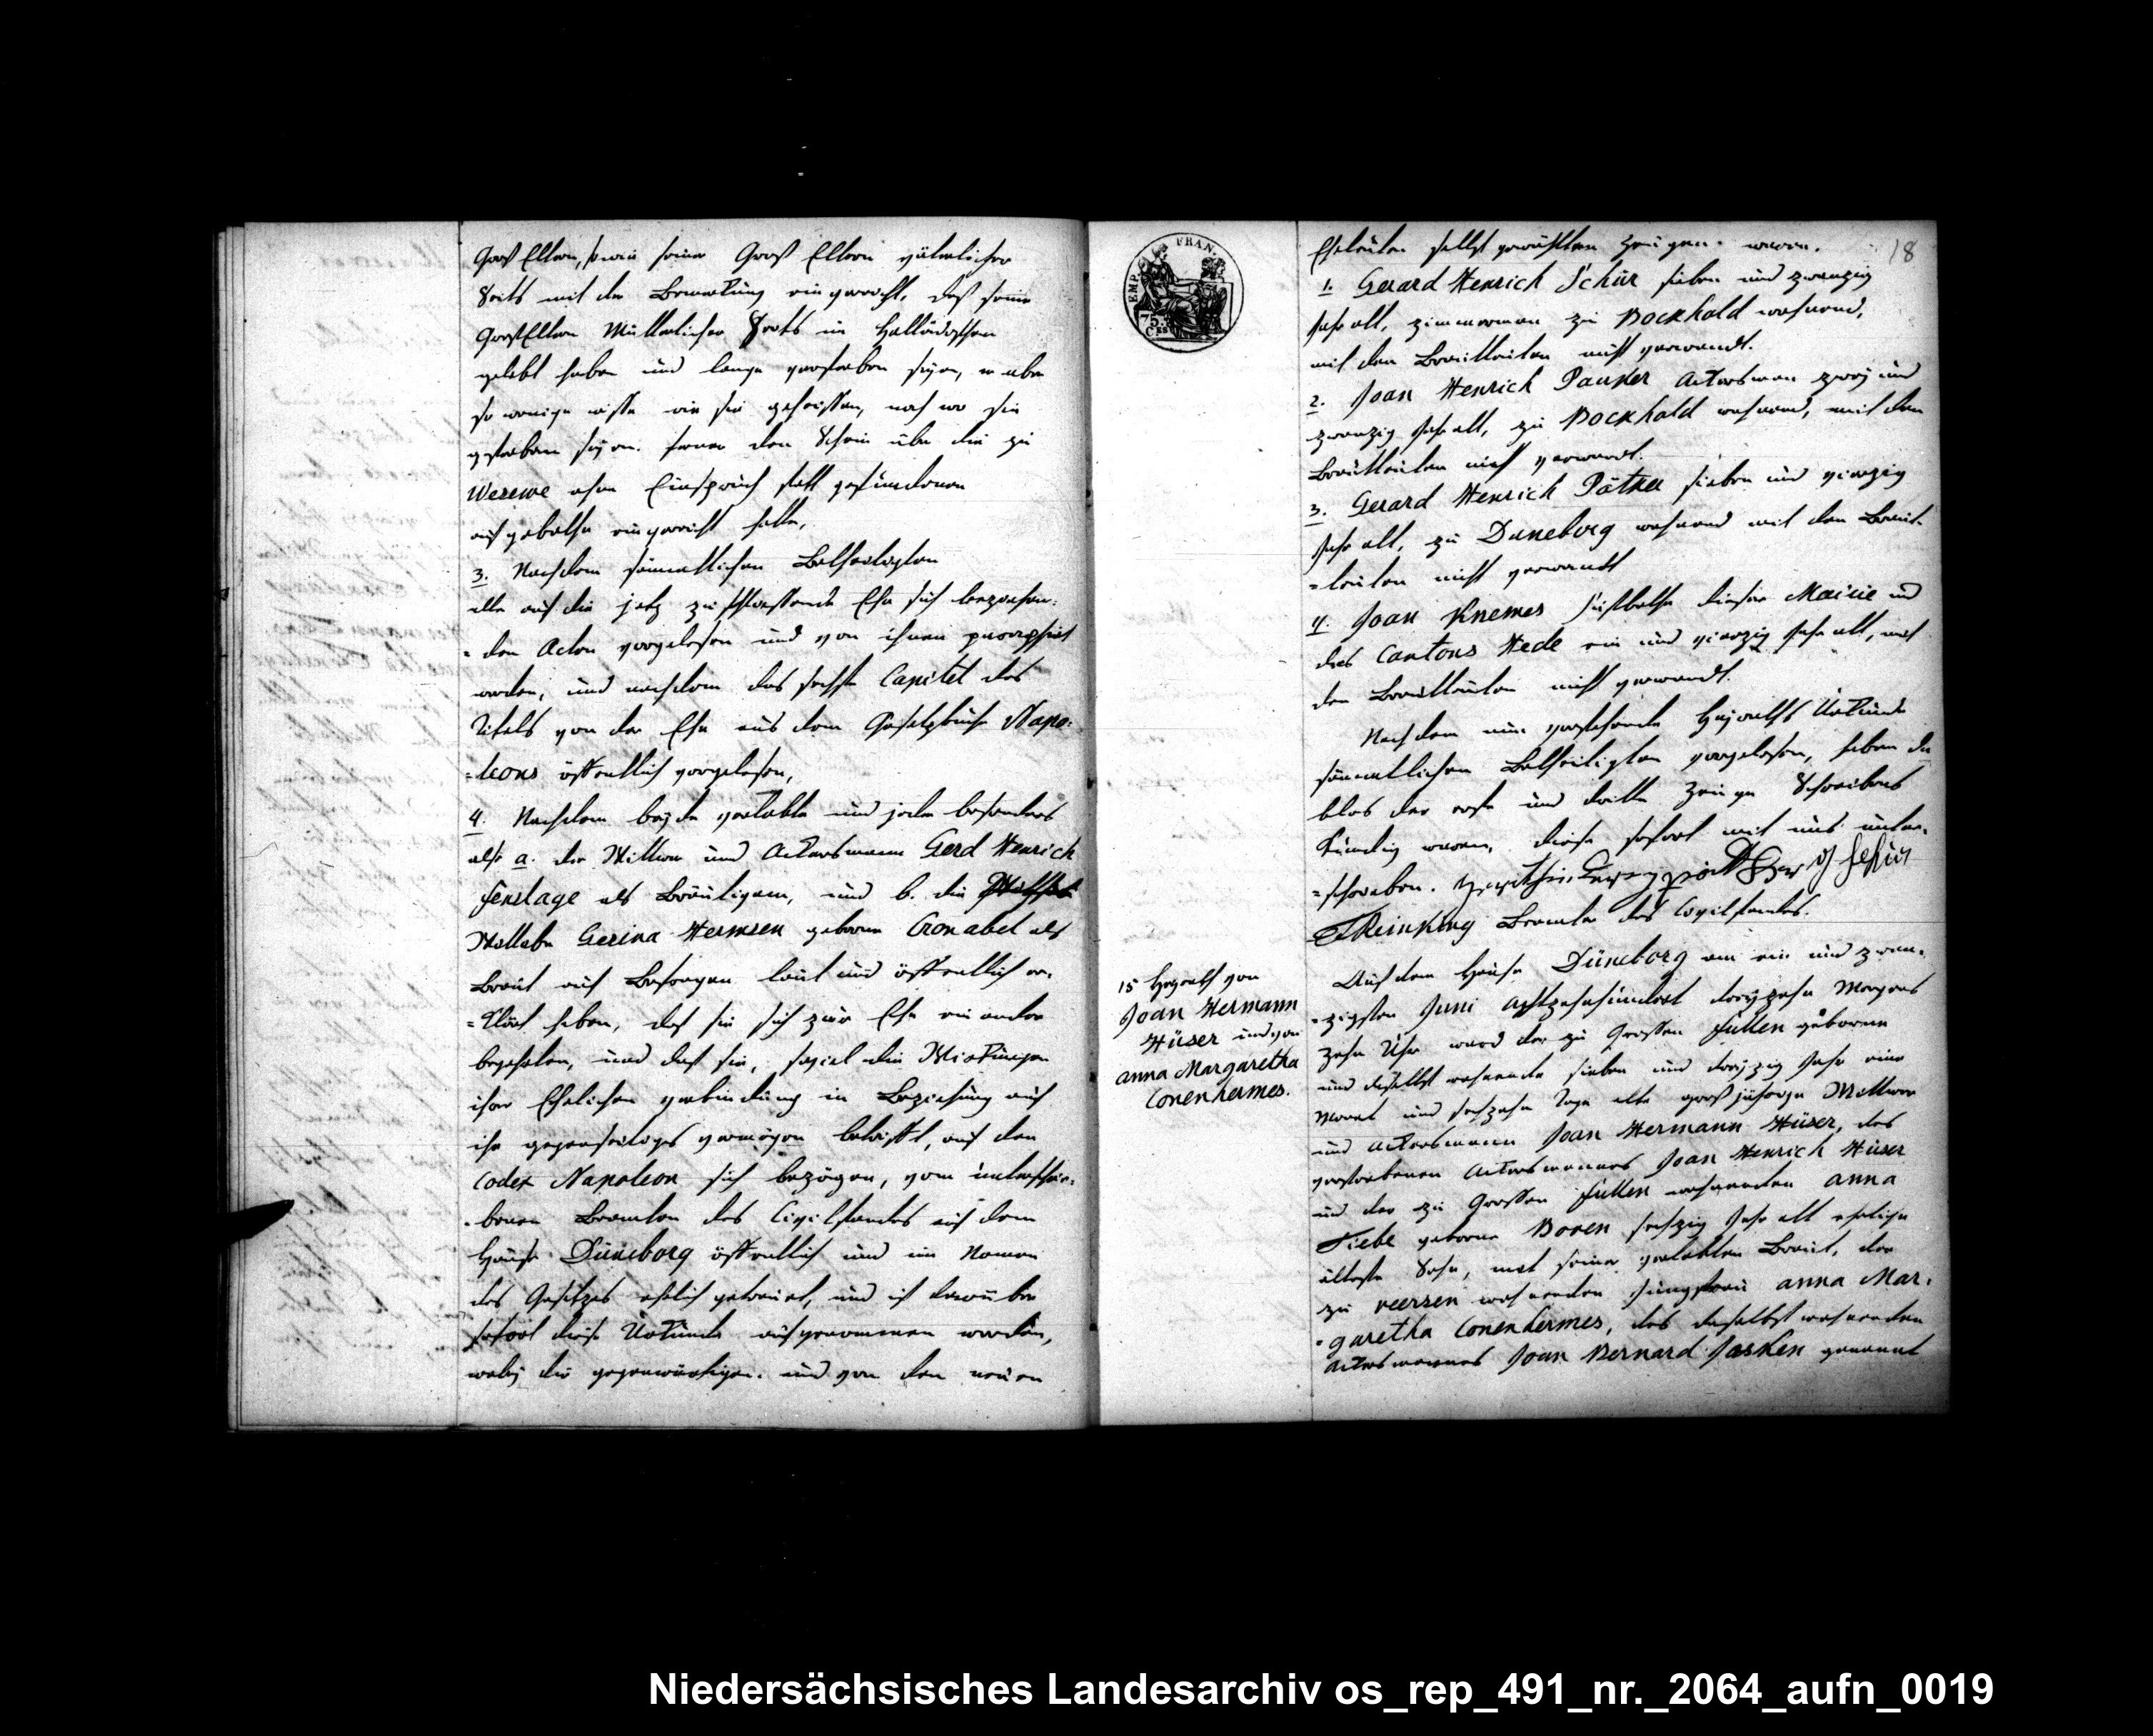 Groß Eltern, sowie seiner Groß Eltern väterlicher
Seits mit der Bemerkung eingereicht, daß seine
GroßEltern Mütterlicher Seits im Holländischen
gelebt haben und lange verstorben seyen, er aber
so wenig wisse wie sie geheissen, noch wo sie
gestorben seyen. ferner den Schein über die zu
Wesuwe ohne Einspruch statt gefundenen
aufgebothe eingereicht hatte,
3. Nachdem sämmtlichen Betheiligten
alle auf die jetz zu schliessende Ehe sich beziehen-
-den Acten vorgelesen und von ihnen paraphirt
worden, und nachdem das sechste Capitel des
Titels von der Ehe aus dem Gesetzbuche Napo-
-leons öffentlich vorgelesen,
4. Nachdem beyde verlobte und jeder besonders
als a. der Wittwer und Ackersmann Gerd Henrich
Fenslage als Bräutigam, und b. die
Wittwe Gerina Hermsen geborne Cronabel als
Braut auf Befragen laut und öffentlich er-
-klärt haben, daß sie sich zur Ehe einander
begehren, und daß sie, soviel die Wirkungen
ihrer Ehelichen verbindung in Beziehung auf
ihr gegenseitiges vermögen betrifft, auf den
Codex Napoleon sich bezögen, vom unterschrie-
-benen Beamten des Civilstandes auf dem
Hause Düneborg öffentlich und im Namen
des Gesetzes ehelich getrauet, und ist darüber
sofort diese Urkunde aufgenommen worden,
wobey die gegenwärtigen und von den neuen
EMP. FRAN.
75.
Ces
18
Eheleuten selbst gewählten Zeugen waren.
1. Gerard Henrich Schür sieben und zwanzig
Jahr alt, zimmerman zu Bockhold wohnend,
mit den Brautleuten nicht verwandt.
2. Joan Henrich Pauker Ackersman zwey und
zwanzig Jahr alt, zu Bockhold wohnend, mit den
Brautleuten nicht verwandt.
3. Gerard Henrich Pötker sieben und vierzig
Jahr alt, zu Duneborg wohnend mit den Braut-
-leuten nicht verwandt
4. Joan Knemes dieser Mairie und
des Cantons Hede ein und vierzig Jahr alt, mit
den Brautleuten nicht verwandt.
Nachdem nun vorstehende Heyraths Urkunde
sämmtlichen Betheiligten vorgelesen, haben da
blos der erste und dritte Zeuge Schreibens
kundig waren, diese sofort mit uns unter-
-schrieben.
Reinking Beamter des Civilstandes.
15 Heyrath von
Joan Hermann
Hüser und von
anna Margaretha
Conenhermes.
Auf dem Hause Düneborg am ein und zwan-
-zigsten Juni achtzehnhundert dreyzehn Morgens
zehn Uhr ward der zu Grossen Fullen geborene
und daselbst wohnende sieben und dreyzig Jahr eine
Monat und sechzehn Tage alte großjährige Wittwer
und Ackersmann Joan Hermann Hüser, des
verstorbenen Ackersmannes Joan Henrich Hüser
und der zu Grossen Fullen wohnenden anna
Tiebe geborne Boven sechzig Jahr alt eheliche
älteste Sohn, mit seiner verlobten Braut, der
zu veersen wohnenden Jungfrau anna Mar-
-garetha Conenhermes, des daselbst wohnenden
Ackersmannes Joan Bernard Jasken genannt
Niedersächsisches Landesarchiv os_rep_491_nr._2064_aufn_0019